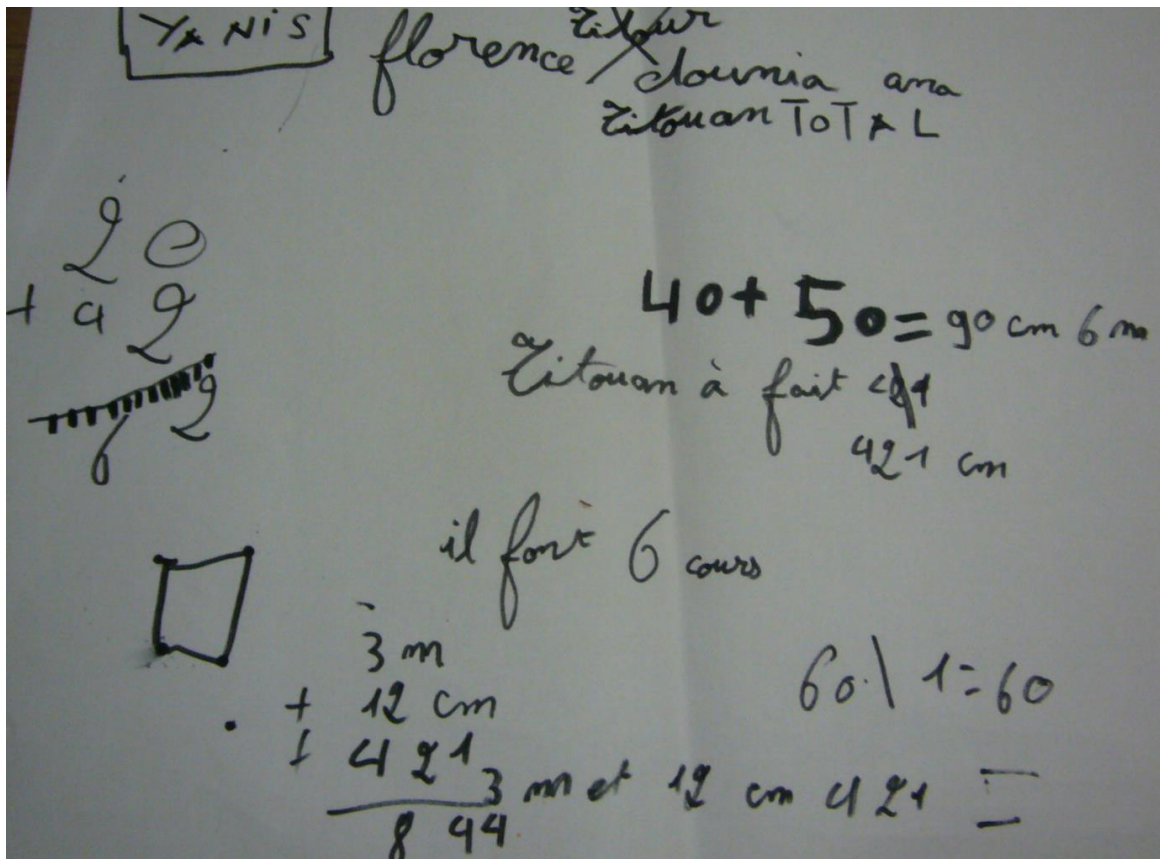 YANIS
florence dounia ana
Titouan TOTAL
20
+ 42
62
40 + 50 = 90 cm 6 m
Titouan à fait
421 cm
il font 6 cours
3 m
+ 12 cm
+ 421
844
60 \ 1 = 60
3 m et 12 cm 421 =